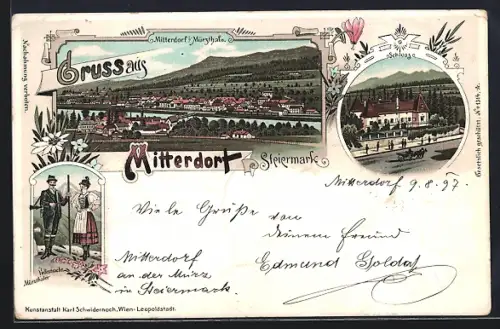 Mitterdorf i/ Mürzthale.
Gruss aus
Mitterdorf
Steiermark
Schloss
Nachahmung verboten.
Gesetzlich geschützt
Volkstracht
Mürzthaler
Mitterdorf 9.8.97.
Viele Grüße von
deinem Freund
Edmund
Mitterdorf
an der Mürz
in Steiermark.
Kunstanstalt Karl Schwidernoch, Wien-Leopoldstadt.